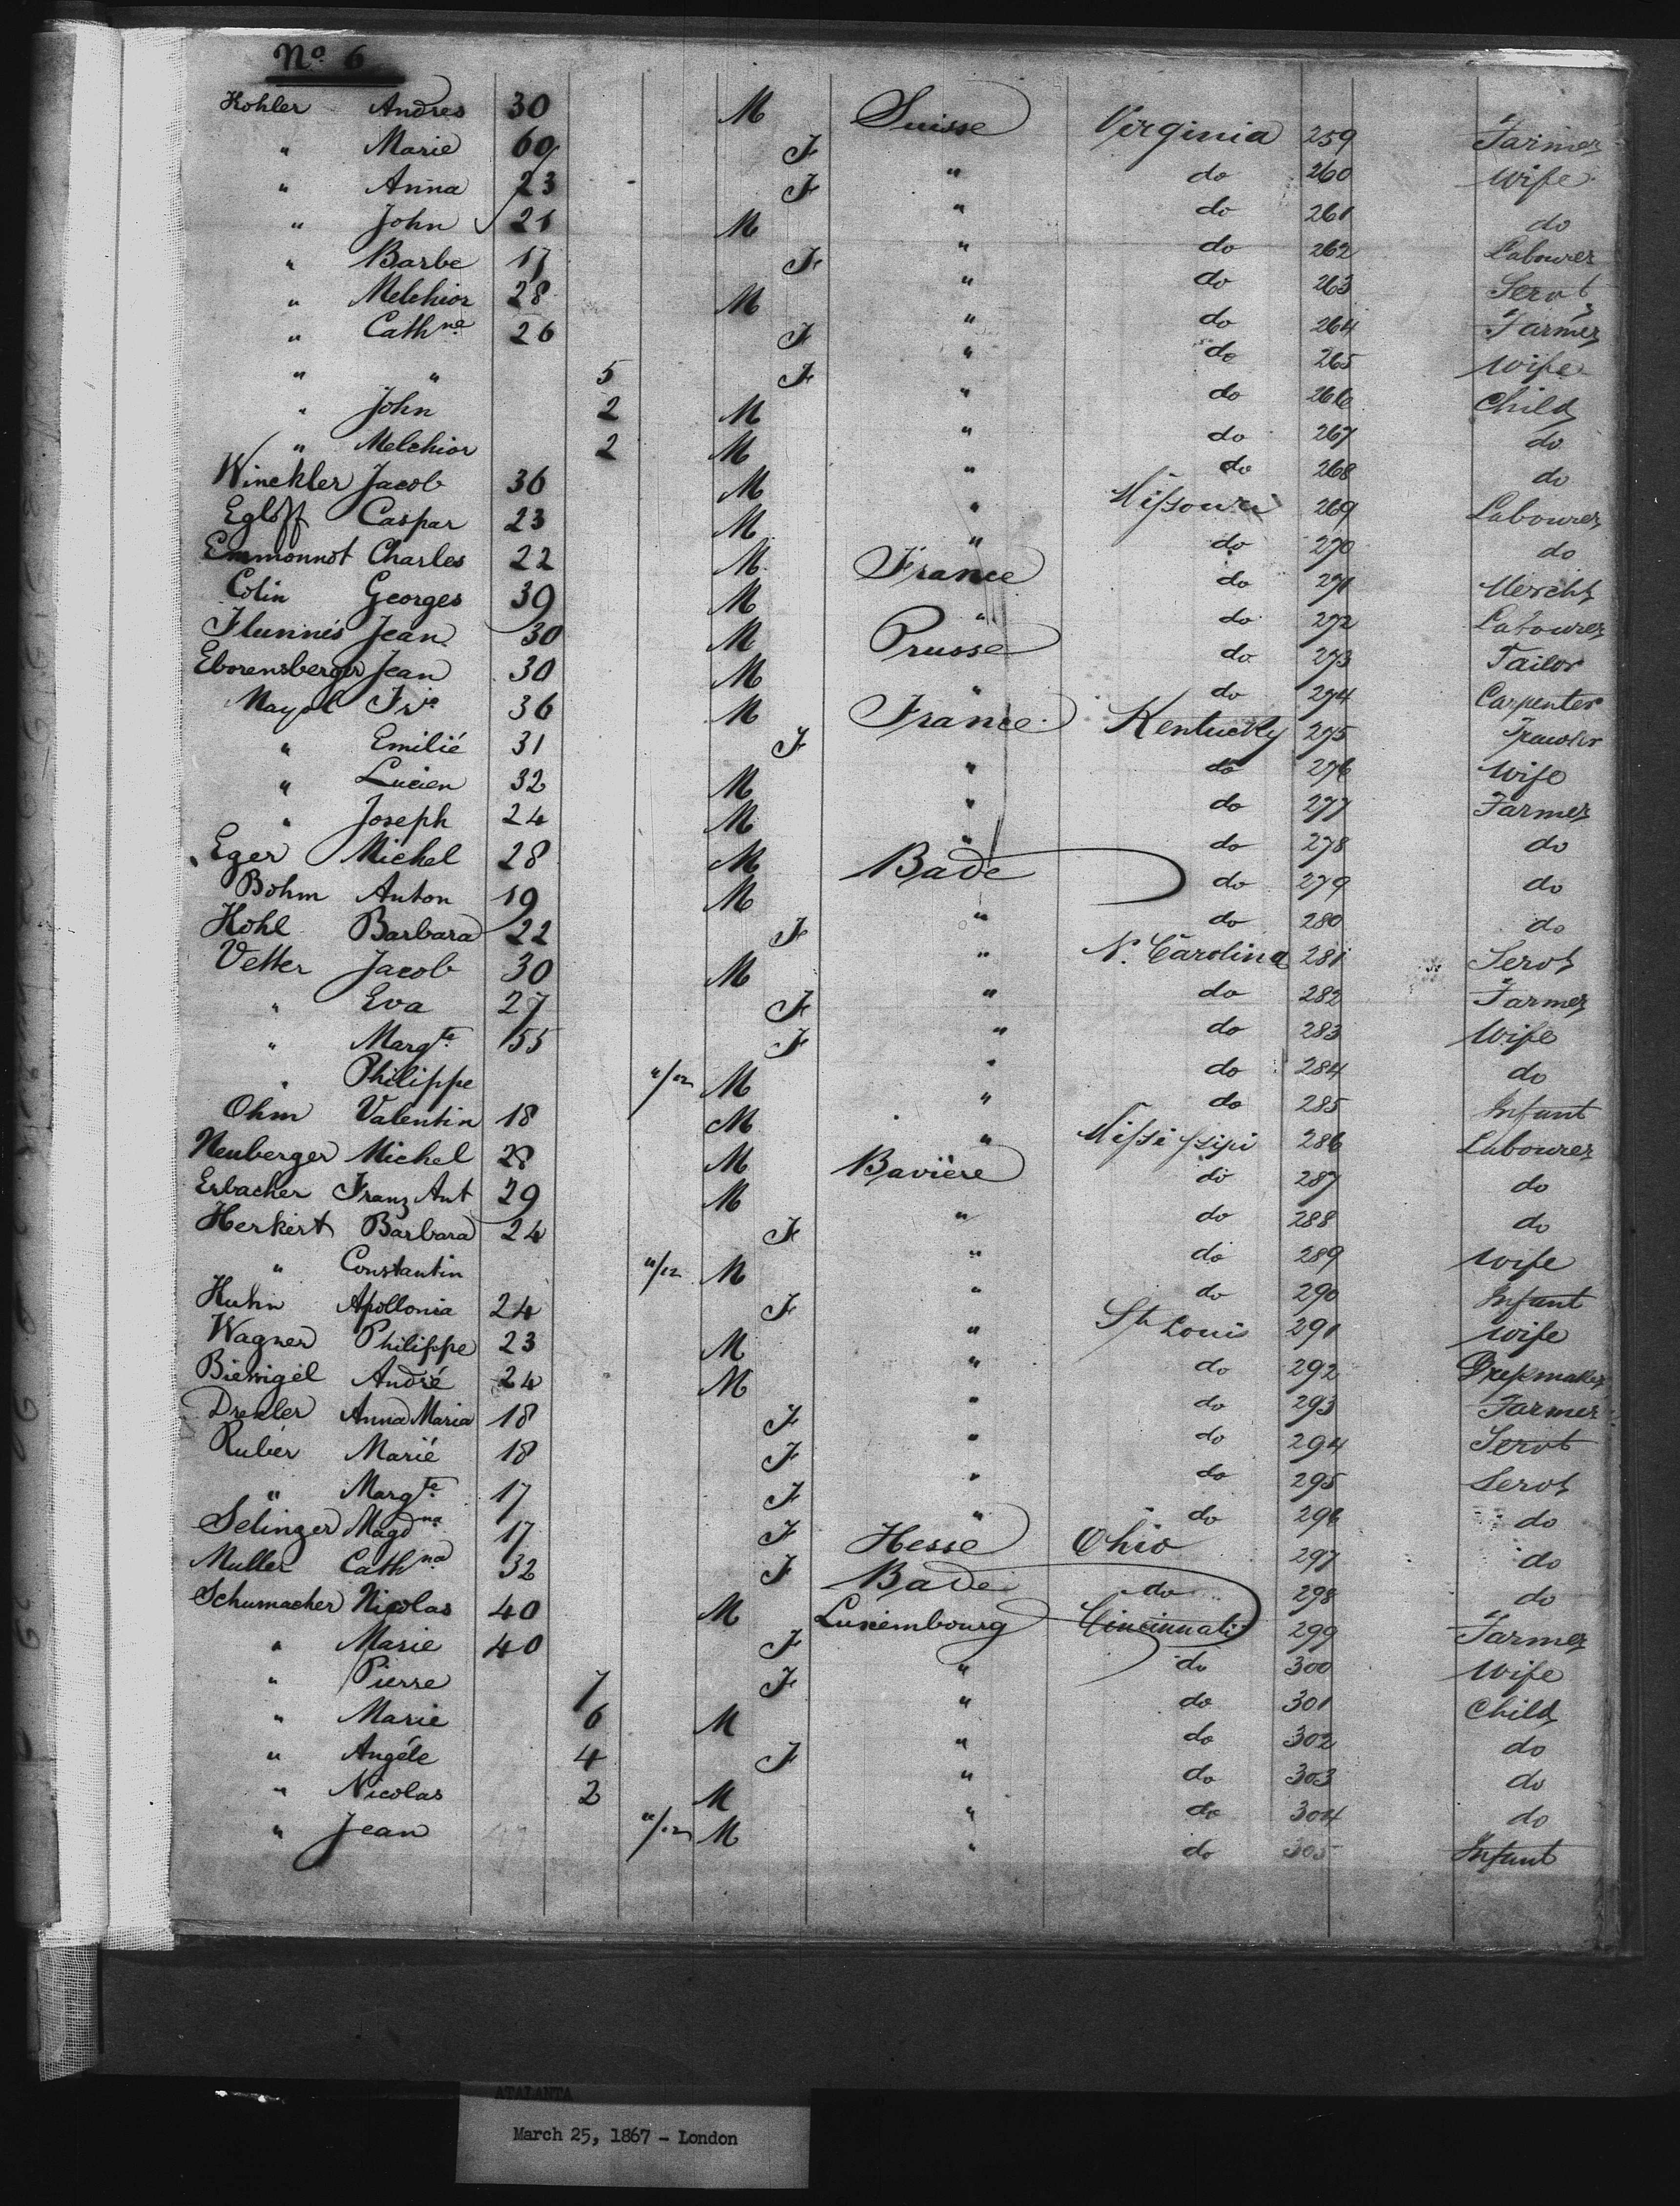 No 6
Kohler Andres 30 M Suisse Virginia 259 Farmer
" Marie 60 F " do 260 Wife
" Anna 23 F " do 261 do
" John 21 M " do 262 Labourer
" Barbe 17 F " do 263 Servt
" Melchior 28 M " do 264 Farmer
" Cathne 26 F " do 265 Wife
" " 5 F " do 266 Child
" John 2 M " do 267 do
" Melchior 2 M " do 268 do
Winckler Jacob 36 M " Missouri 269 Labourer
Egloff Caspar 23 M " do 270 do
Emmonnot Charles 22 M France do 271 Mercht
Colin Georges 39 M " do 272 Labourer
Jean 30 M Prusse do 273 Tailor
Eborensberger Jean 30 M " do 274 Carpenter
Mayol 36 M France Kentucky 275
" Emilié 31 F " do 276 Wife
" Lucien 32 M " do 277 Farmer
" Joseph 24 M " do 278 do
Eger Michel 28 M Bade do 279 do
Bohm Anton 19 M " do 280 do
Kohl Barbara 22 F " N. Carolina 281 Servt
Vetter Jacob 30 M " do 282 Farmer
" Eva 27 F " do 283 Wife
" Margte 55 F " do 284 do
" Philippe "/12 M " do 285 Infant
Ohm Valentin 18 M " Mississipi 286 Labourer
Neuberger Michel 28 M Bavière do 287 do
Erbacher Franz Ant 29 M " do 288 do
Herkert Barbara 24 F " do 289 Wife
" Constantin "/12 M " do 290 Infant
Kuhn Apollonia 24 F " St Louis 291 Wife
Wagner Philippe 23 M " do 292
André 24 M " do 293 Farmer
Drexler Anna Maria 18 F " do 294 Servt
Rubér Marié 18 F " do 295 Servt
" Margte 17 F " do 296 do
Selinzer Magdna 17 F Hesse Ohio 297 do
Muller Cathna 32 F Bade do 298 do
Schumacher Nicolas 40 M Luxembourg Cincinnati 299 Farmer
" Marie 40 F " do 300 Wife
" Pierre 7 F " do 301 Child
" Marie 6 M " do 302 do
" Angéle 4 F " do 303 do
" Nicolas 2 M " do 304 do
" Jean "/12 M " do 305 Infant
ATALANTA
March 25, 1867 - London